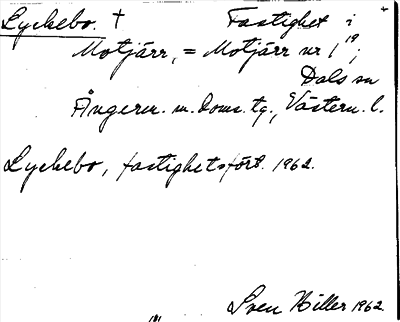 Lyckebo. † Fastighet i
Motjärr, = Motjärr nr 1¹⁹;
Dals sn
Ångerm. m. doms. tg., Västern. l.
Lyckebo, fastighetsfört. 1962.
Sven Hiller 1962.